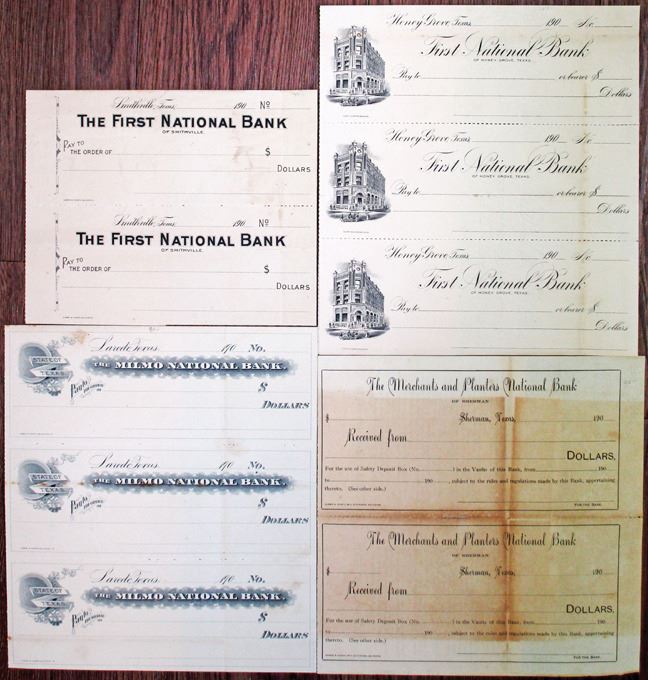 Smithville, Texas, 190 No
THE FIRST NATIONAL BANK
OF SMITHVILLE.
PAY TO
THE ORDER OF $
DOLLARS
Smithville, Texas, 190 No
THE FIRST NATIONAL BANK
OF SMITHVILLE.
PAY TO
THE ORDER OF $
DOLLARS
Honey Grove, Texas, 190 No
First National Bank
OF HONEY GROVE, TEXAS.
Pay to or bearer $
Dollars
Honey Grove, Texas, 190 No
First National Bank
OF HONEY GROVE, TEXAS.
Pay to or bearer $
Dollars
Honey Grove, Texas, 190 No
First National Bank
OF HONEY GROVE, TEXAS.
Pay to or bearer $
Dollars
Laredo Texas, 190 No.
STATE OF TEXAS
THE MILMO NATIONAL BANK.
Pay to $
DOLLARS
Laredo Texas, 190 No.
STATE OF TEXAS
THE MILMO NATIONAL BANK.
Pay to $
DOLLARS
Laredo Texas, 190 No.
STATE OF TEXAS
THE MILMO NATIONAL BANK.
Pay to $
DOLLARS
The Merchants and Planters National Bank
OF SHERMAN
$ Sherman, Texas, 190
Received from
DOLLARS,
For the use of Safety Deposit Box (No. ) in the Vaults of this Bank, from 190
to 190 , subject to the rules and regulations made by this Bank, appertaining
thereto. (See other side.)
FOR THE BANK.
The Merchants and Planters National Bank
OF SHERMAN
$ Sherman, Texas, 190
Received from
DOLLARS,
For the use of Safety Deposit Box (No. ) in the Vaults of this Bank, from 190
to 190 , subject to the rules and regulations made by this Bank, appertaining
thereto. (See other side.)
FOR THE BANK.